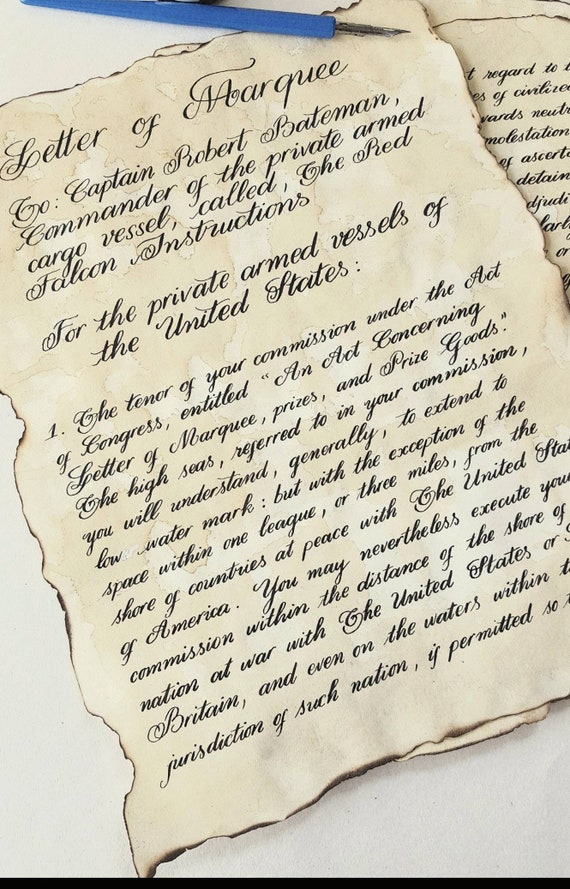 Letter of Marquee
To: Captain Robert Bateman,
Commander of the private armed
cargo vessel, called, The Red
Falcon Instructions
For the private armed vessels of
the United States:
1. The tenor of your commission under the Act
of Congress, entitled "An Act Concerning
Letter of Marquee, prizes, and Prize Goods."
The high seas, referred to in your commission,
you will understand, generally, to extend to
low water mark: but with the exception of the
space within one league, or three miles, from the
shore of countries at peace with The United
of America. You may nevertheless execute
commission within the distance of the shore of
nation at war with The United States or
Britain, and even on the waters within
jurisdiction of such nation, if permitted so
regard to
of civilized
neutr
molestation
of
detain